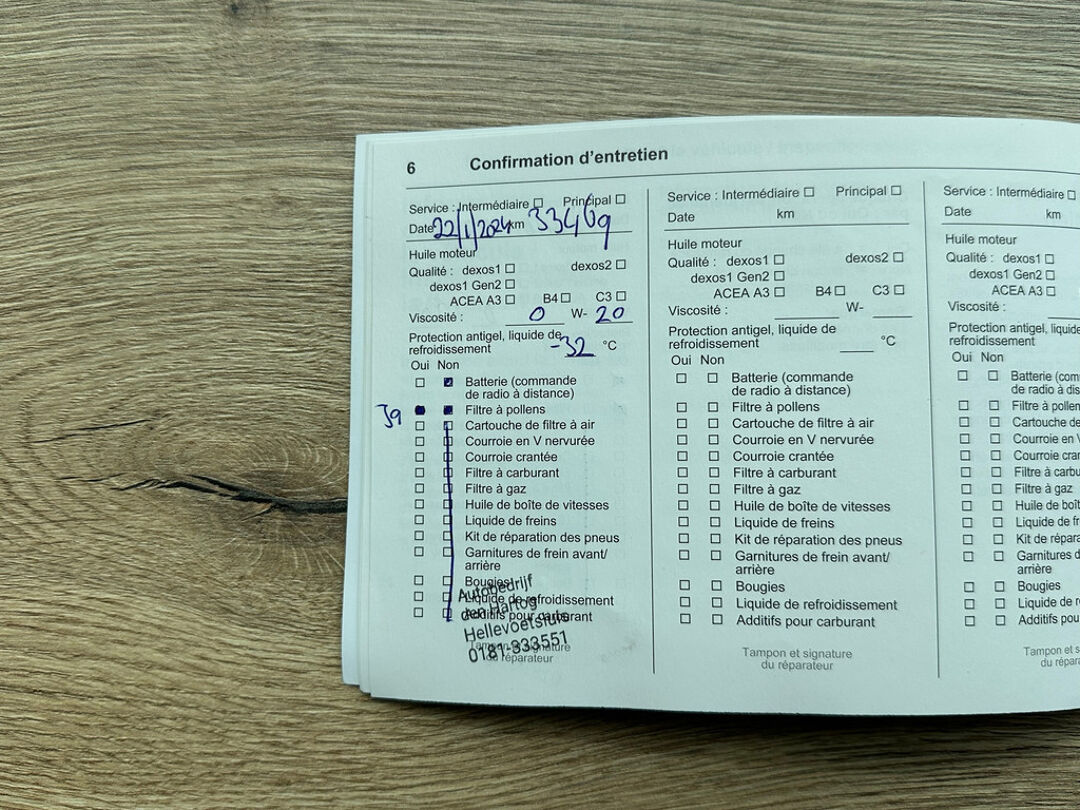 6 Confirmation d'entretien
Service : Intermédiaire ☐ Principal ☐
Date 22/1/2024 km 33469
Huile moteur
Qualité : dexos1 ☐ dexos2 ☐
dexos1 Gen2 ☐
ACEA A3 ☐ B4 ☐ C3 ☐
Viscosité : 0 W- 20
Protection antigel, liquide de
refroidissement -32 °C
Oui Non
Batterie (commande
de radio à distance)
Filtre à pollens
Cartouche de filtre à air
Courroie en V nervurée
Courroie crantée
Filtre à carburant
Filtre à gaz
Huile de boîte de vitesses
Liquide de freins
Kit de réparation des pneus
Garnitures de frein avant/
arrière
Bougies
Liquide de refroidissement
Additifs pour carburant
Autobedrijf
den Hartog
Hellevoetsluis
0181-333551
Tampon et signature
du réparateur
Service : Intermédiaire ☐ Principal ☐
Date km
Huile moteur
Qualité : dexos1 ☐ dexos2 ☐
dexos1 Gen2 ☐
ACEA A3 ☐ B4 ☐ C3 ☐
Viscosité : W-
Protection antigel, liquide de
refroidissement °C
Oui Non
Batterie (commande
de radio à distance)
Filtre à pollens
Cartouche de filtre à air
Courroie en V nervurée
Courroie crantée
Filtre à carburant
Filtre à gaz
Huile de boîte de vitesses
Liquide de freins
Kit de réparation des pneus
Garnitures de frein avant/
arrière
Bougies
Liquide de refroidissement
Additifs pour carburant
Tampon et signature
du réparateur
Service : Intermédiaire ☐
Date km
Huile moteur
Qualité : dexos1 ☐
dexos1 Gen2 ☐
ACEA A3 ☐
Viscosité :
Protection antigel, liquide
refroidissement
Oui Non
Batterie (com
de radio à dis
Filtre à pollen
Cartouche de
Courroie en V
Courroie cran
Filtre à carbu
Filtre à gaz
Huile de boît
Liquide de fr
Kit de répara
Garnitures d
arrière
Bougies
Liquide de r
Additifs pou
Tampon et s
du répara